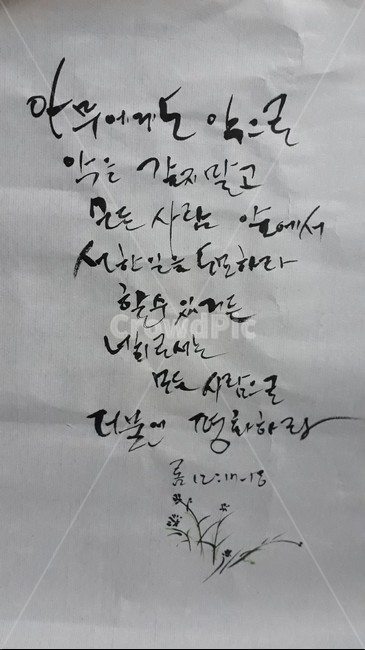 아무에게도 악으로
악을 갚지말고
모든 사람 앞에서
선한일을 도모하라
할 수 있거든
너희로서는
모든 사람으로
더불어 평화하라
롬 12:17-18
CrowdPic